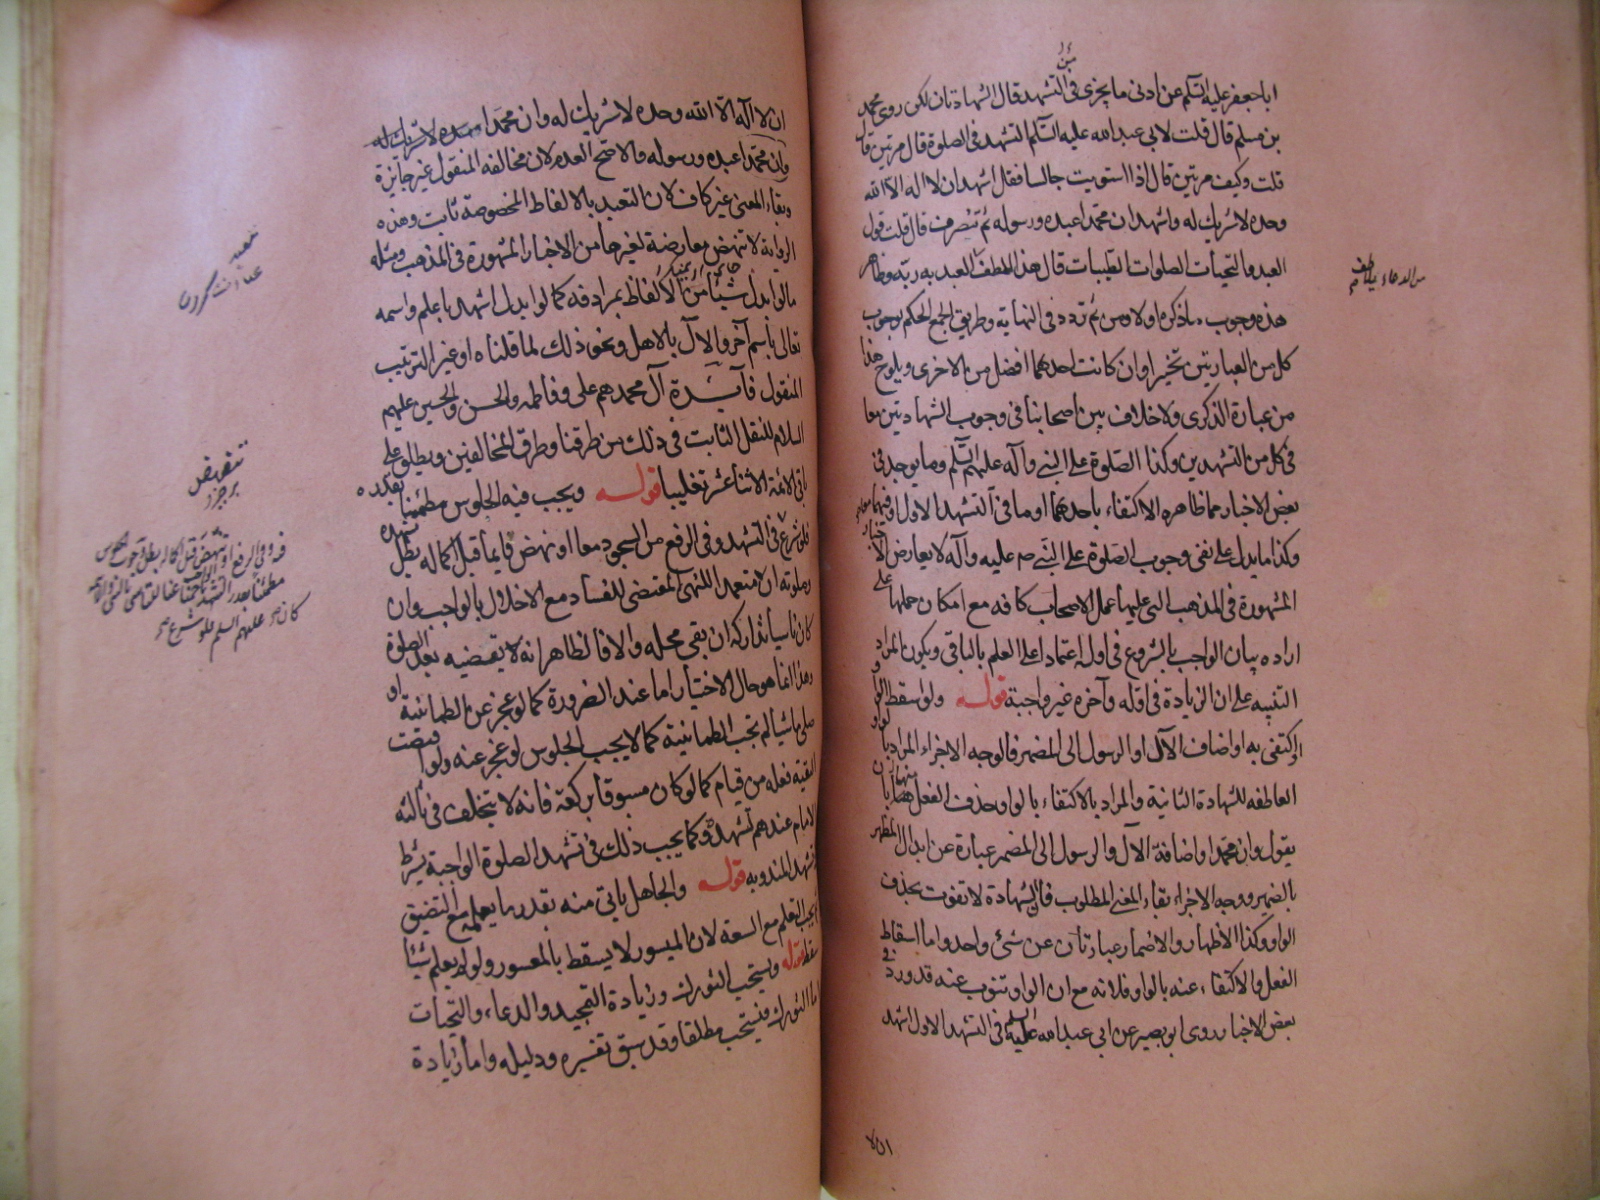 ابا جعفر عليه السلم عن ادنى ما يجزى فى التشهد قال الشهادتان لكن روى محمد
بن مسلم قال قلت لابي عبد الله عليه السلم التشهد فى الصلوة قال مرتين قال
قلت وكيف مرتين قال اذا استويت جالسا فقل اشهد ان لا اله الا الله
وحده لا شريك له واشهد ان محمدا عبده ورسوله ثم تنصرف قال قلت قول
العبد التحيات الصلوات الطيبات قال هذا اللطف العبد به ربه وظاهر
هذه وجوب ما ذكره اولا ومن ثم تردد فى النهاية وطريق الجمع الحكم بوجوب
كل من العبارتين تخييرا وان كانت احدهما افضل من الاخرى ويلوح هذا
من عبارة الذكرى ولا خلاف بين اصحابنا فى وجوب الشهادتين معا
فى كل من التشهدين وكذا الصلوة على النبي وآله عليهم السلم وما يوجد فى
بعض الاخبار مما ظاهره الاكتفاء باحدهما او ما فى التشهد الاول او فيهما معا
وكذا ما يدل على نفى وجوب الصلوة على النبي ص عليه وآله لا يعارض الاخبار
المشهورة فى المذهب التى عليها عمل الاصحاب كافه مع امكان حملها على
اراده بيان الواجب بالشروع فى اوله اعتمادا على العلم بالباقى ويكون المراد
التنبيه على ان الزيادة فى اوله وآخره غير واجبة قوله ولو اسقط الواو
او اكتفى به او اضاف الآل او الرسول الى المضمر فالوجه الاجزاء المراد بالواو
العاطفه للشهادة الثانية والمراد بالاكتفاء بالواو حذف الفعل منها بان
يقول وان محمدا واضافة الآل والرسول الى المضمر عبارة عن ابدال المظهر
بالضمير ووجه الاجزاء بقاء المعنى المطلوب فان الشهادة لا تفوت بحذف
الواو وكذا الاظهار والاضمار عبارتان عن شئ واحد واما اسقاط
الفعل والاكتفاء عنه بالواو فلانه مع ان الواو تنوب عنه قد ورد فى
بعض الاخبار روى ابو بصير عن ابى عبد الله عليه السلم فى التشهد الاول اشهد
من الدعاء يلطف
ان لا اله الا الله وحده لا شريك له وان محمدا عبده لا شريك له
وان محمدا عبده ورسوله والاصح العدم لان مخالفه المنقول غير جايزة
وبقاء المعنى غير كاف لان التعبد بالالفاظ المخصوصة ثابت وهذه
الرواية لا تنهض معارضة لغيرها من الاخبار المشهورة فى المذهب ومثله
ما لو ابدل شيئا من الالفاظ بمرادفه كما لو ابدل اشهد باعلم واسمه
تعالى باسم آخر والآل بالاهل ونحو ذلك لما قلناه او غير الترتيب
المنقول فآيدة آل محمد هم على وفاطمه والحسن والحسين عليهم
السلام للنقل الثابت فى ذلك من طرقنا وطرق المخالفين ويطلق على
باقى الائمة الاثنا عشر تغليبا قوله ويجب فيه الجلوس مطمئنا بقدره
فلو شرع فى التشهد وفى الرفع من السجود معا او نهض قايما قبل اكماله بطل تشهده
وصلوته ان تعمد للنهى المقتضى للفساد مع الاخلال بالواجب وان
كان ناسيا تداركه ان بقى محله والا فالظاهر انه لا يقضيه بعد الصلوة
وهذا انما هو حال الاختيار اما عند الضرورة كما لو عجز عن الطمانينة او
صلى ماشيا لم تجب الطمانينة كما لا يجب الجلوس لو عجز عنه ولو اقتضت
التقية فعله من قيام كما لو كان مسبوقا بركعة فانه لا يتخلف فى ثالثه
الامام عندهم تشهد وكما يجب ذلك فى تشهد الصلوة الواجبة يشترط
فى تشهد المندوبه قوله والجاهل ياتى منه بقدر ما يعلمه مع التضيق
يجب التعلم مع السعة لان الميسور لا يسقط بالمعسور ولو لم يعلم شيئا
سقط قوله ويستحب التورك وزيادة التحميد والدعاء والتحيات
اما التورك فيستحب مطلقا وقد سبق تفسيره ودليله واما زيادة
تعبد
عبادت كردن
تنهض
برخيزد